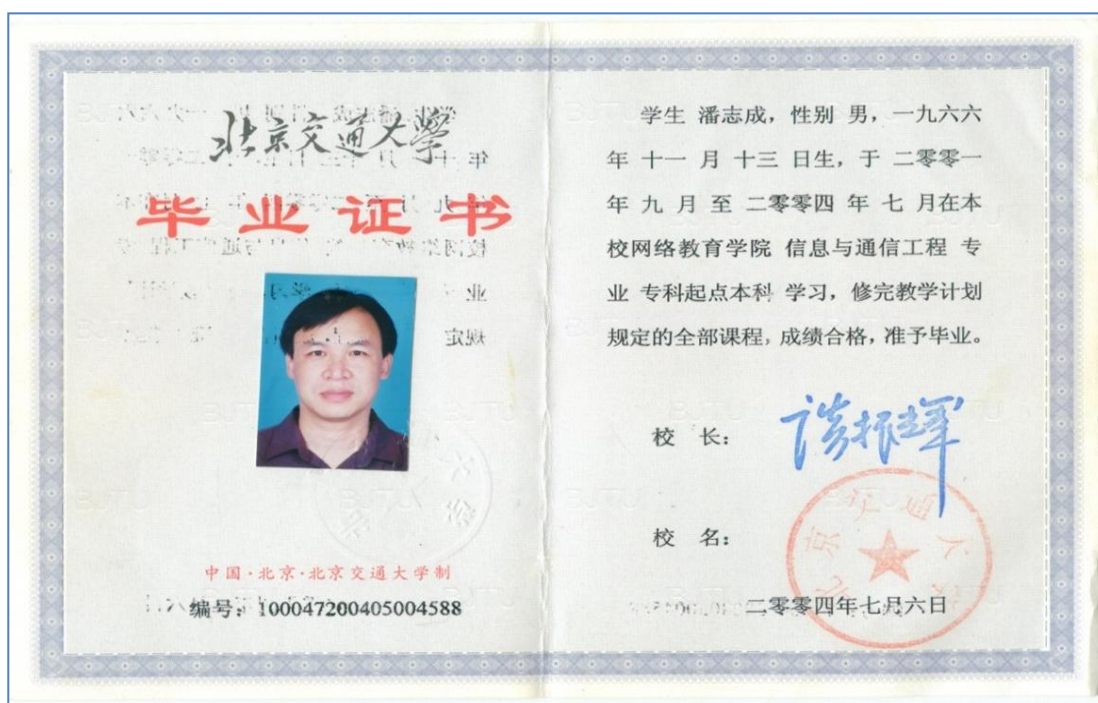 北京交通大學
毕业证书
中国·北京·北京交通大学制
编号：100047200405004588
学生 潘志成，性别 男，一九六六
年 十一 月 十三 日生，于 二零零一
年 九 月 至 二零零四 年 七 月在本
校网络教育学院 信息与通信工程 专
业 专科起点本科 学习，修完教学计划
规定的全部课程，成绩合格，准予毕业。
校 长：
谈振辉
校 名：
北京交通大学
二零零四年七月六日